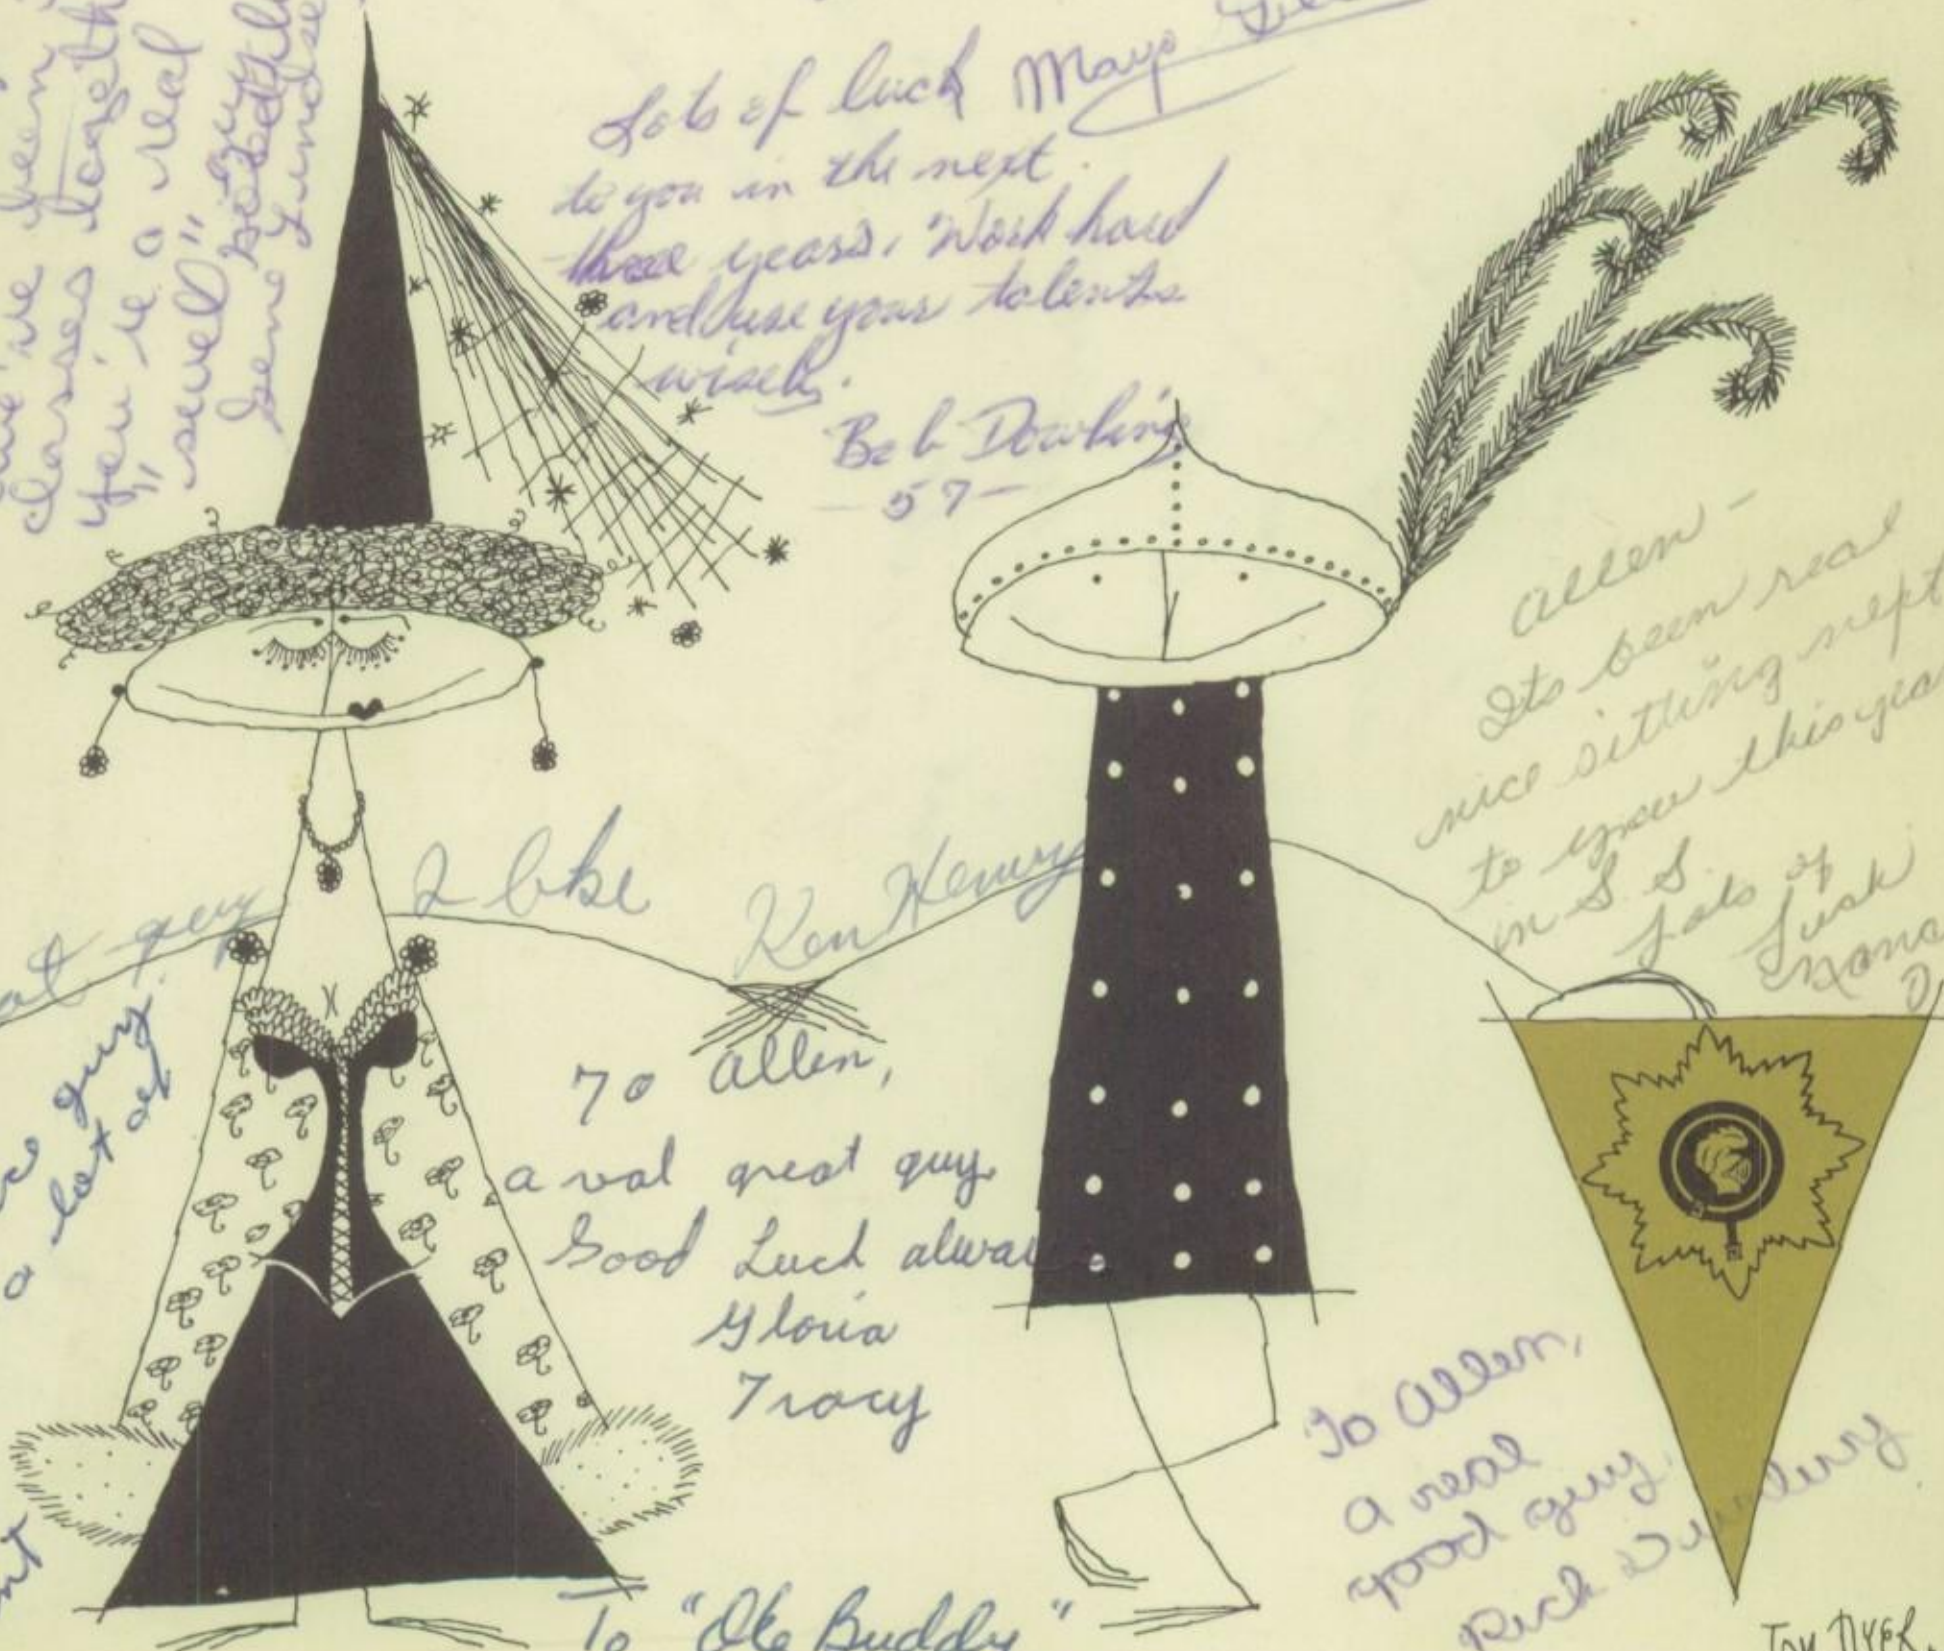 classes togeth
you're a real
"swell" guy
Gene Lindse
Lots of luck Mayo
to you in the next
three years. Work hard
and use your talents
wisely.
Bob Dowling
-57-
Allen -
Its been real
nice sitting nept
to you this year
in S. S.
Lots of
Luck
I like
Ken Henry
guy
guy
a lot of
To Allen,
a real great guy
Good Luck alwa
Gloria
Tracy
To Allen,
a real
good guy,
Rick
To "Ole Buddy"